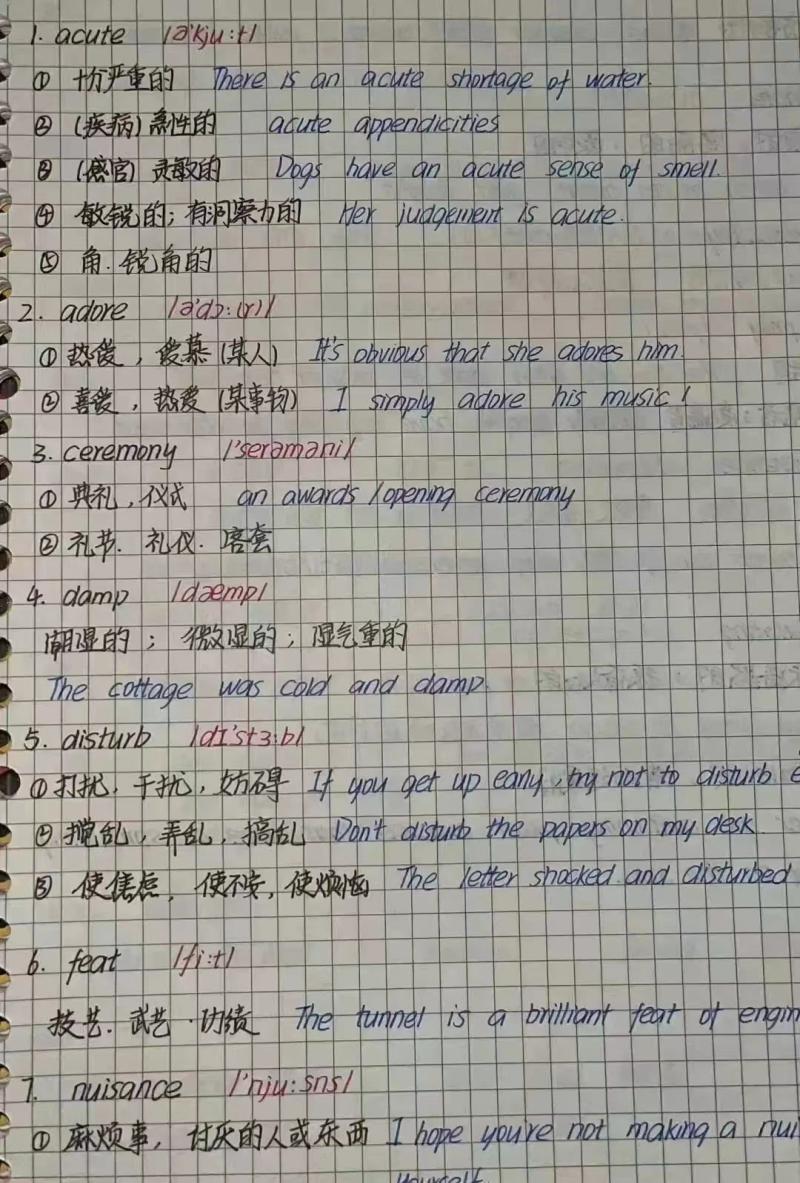 1. acute /ə'kju:t/
① 十分严重的 There is an acute shortage of water.
② (疾病) 急性的 acute appendicities
③ (感官) 灵敏的 Dogs have an acute sense of smell.
④ 敏锐的; 有洞察力的 Her judgement is acute.
⑤ 角. 锐角的
2. adore /ə'dɔ:(r)/
① 热爱, 爱慕 (某人) It's obvious that she adores him.
② 喜爱, 热爱 (某事物) I simply adore his music!
3. ceremony /'serəməni/
① 典礼, 仪式 an awards/opening ceremony
② 礼节. 礼仪. 客套
4. damp /dæmp/
潮湿的; 微湿的; 湿气重的
The cottage was cold and damp.
5. disturb /dɪ'stɜ:b/
① 打扰, 干扰, 妨碍 If you get up early, try not to disturb e
② 搅乱, 弄乱, 搞乱 Don't disturb the papers on my desk.
③ 使焦虑, 使不安, 使烦恼 The letter shocked and disturbed
6. feat /fi:t/
技艺. 武艺. 功绩 The tunnel is a brilliant feat of engin
7. nuisance /'nju:sns/
① 麻烦事, 讨厌的人或东西 I hope you're not making a nui
yourself.